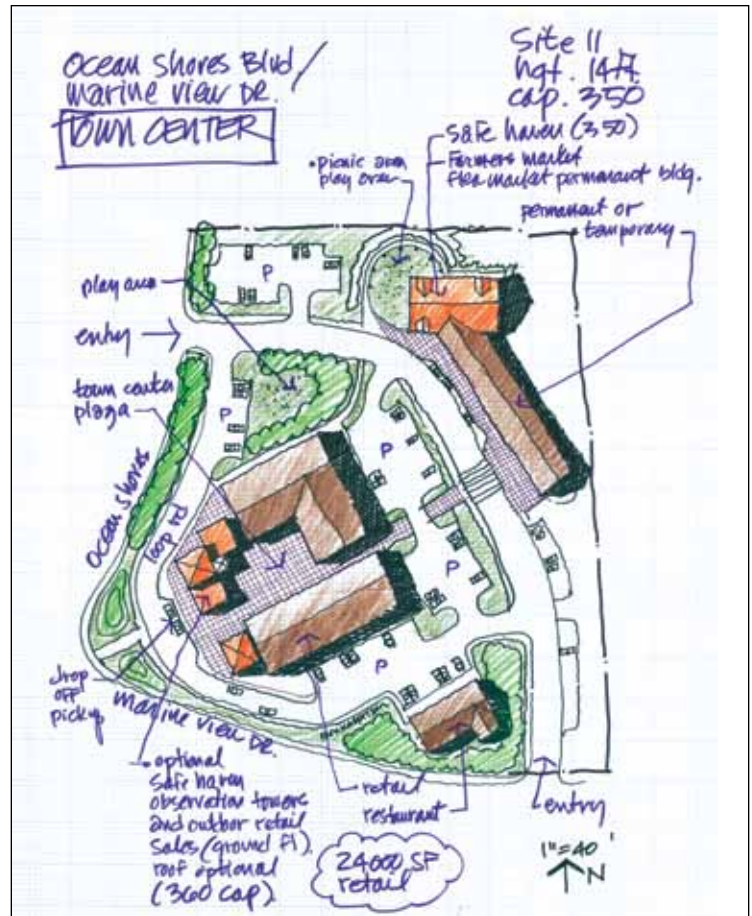 Ocean Shores Blvd/
Marine View DR.
TOWN CENTER
Site 11
hgt. 14 ft.
cap. 350
safe haven (350)
Farmers market
flea market permanant bldg.
permanant or
temporary
• picnic area
play area
play area
entry
town center
plaza
P
P
P
P
P
Ocean Shores
loop rd
drop
off
pickup
Marine View DR.
• optional
safe haven
observation towers
and outdoor retail
sales (ground fl).
roof optional
(360 cap)
retail
restaurant
24000 SF
retail
entry
1"=40'
N